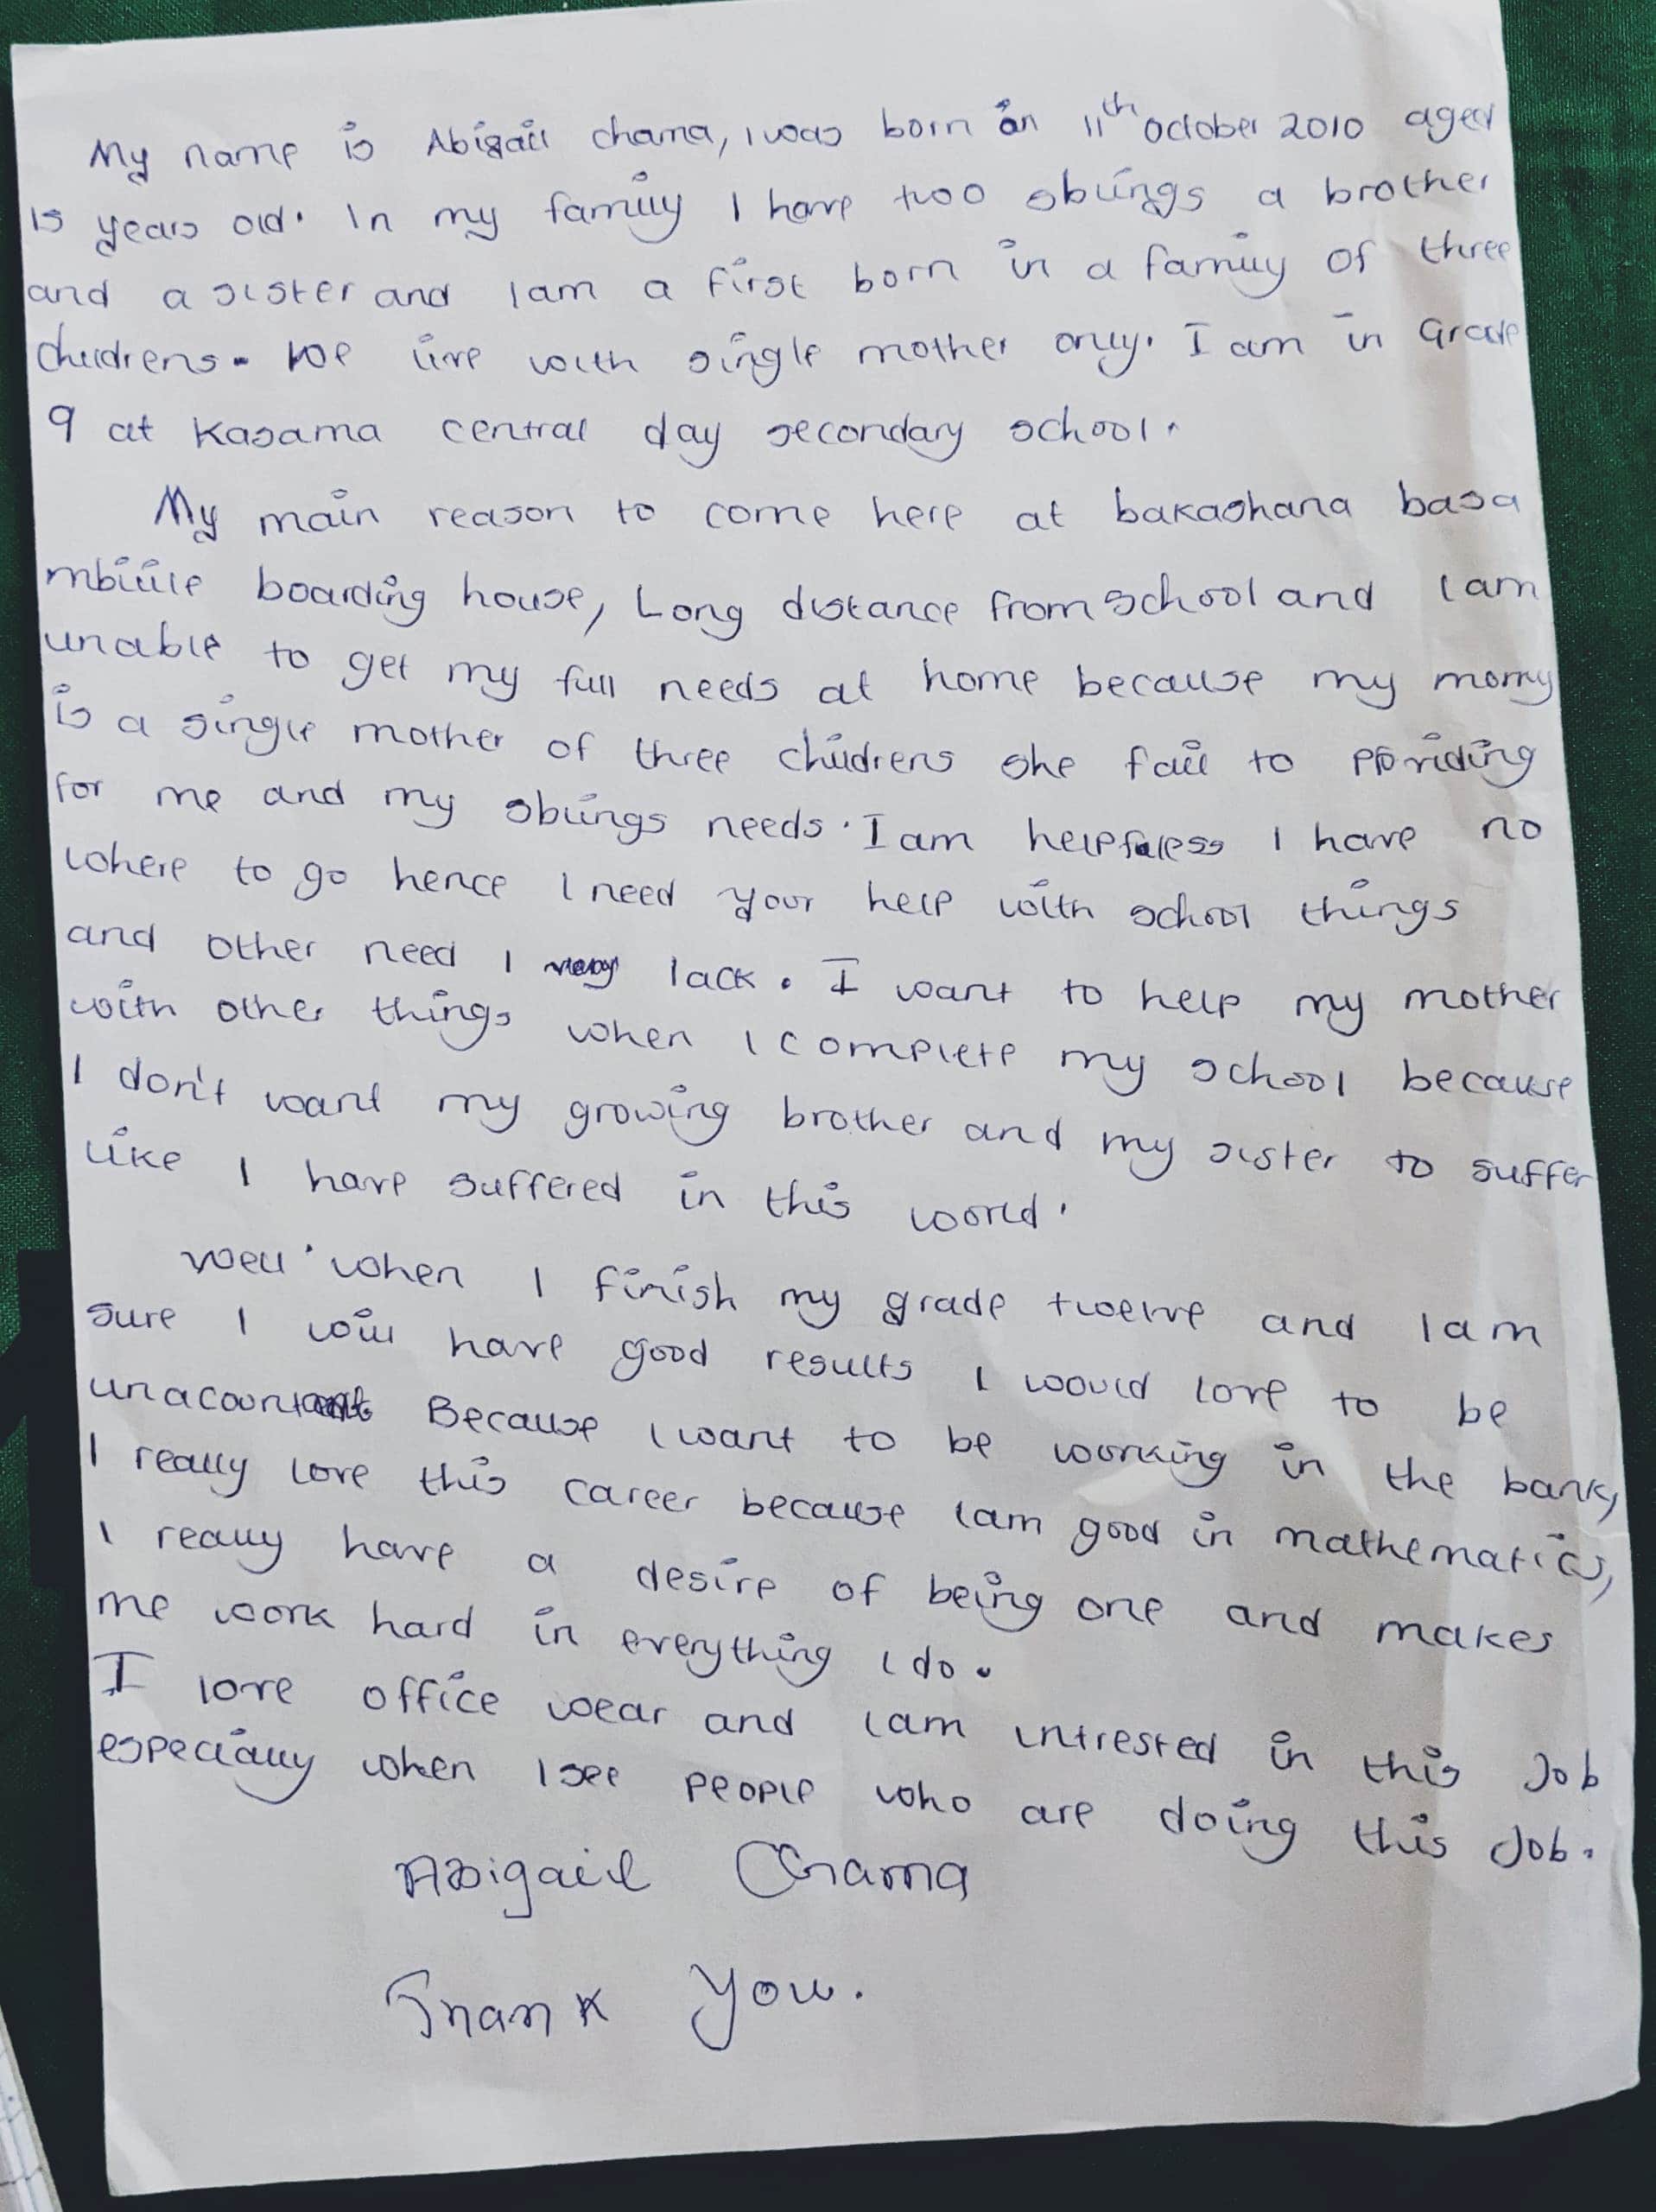 My name is Abigail chama, I was born on 11th October 2010 aged
15 years old. In my family I have two sblings a brother
and a sister and I am a first born in a family of three
childrens. We live with single mother only. I am in Grade
9 at Kasama central day secondary school.
My main reason to come here at bakashana basa
mbilile boarding house, Long distance from school and I am
unable to get my full needs at home because my momy
is a single mother of three childrens she fail to providing
for me and my sblings needs. I am helpless I have no
where to go hence I need your help with school things
and other need I lack. I want to help my mother
with other things when I complete my school because
I don't want my growing brother and my sister to suffer
like I have suffered in this world.
Well when I finish my grade twelve and I am
sure I will have good results I would love to be
unacountant Because I want to be working in the bank,
I really love this career because I am good in mathematics,
I really have a desire of being one and makes
me work hard in everything I do.
I love office wear and I am intrested in this Job
especially when I see people who are doing this Job.
Abigail Chama
Thank You.